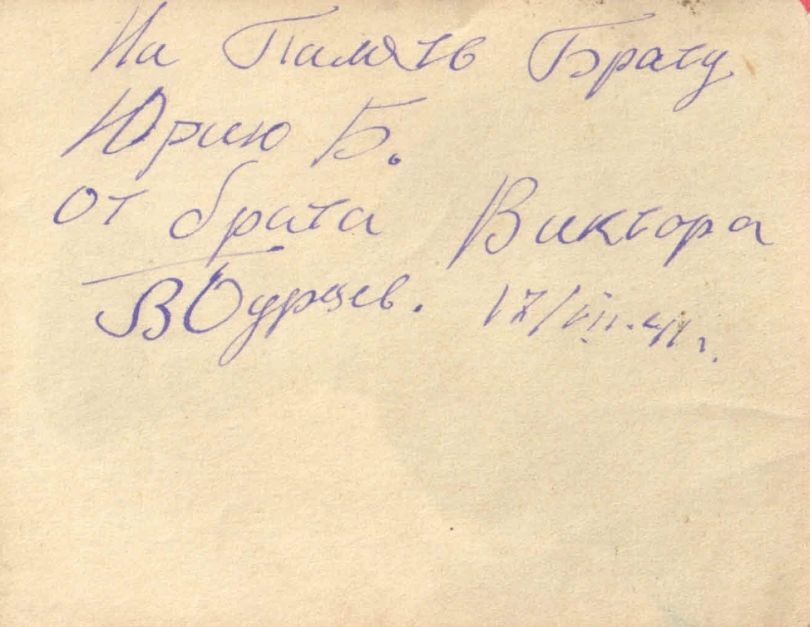 На Память Брату
Юрию Б.
от брата Виктора
ВБурцев. 17/VII-41 г.